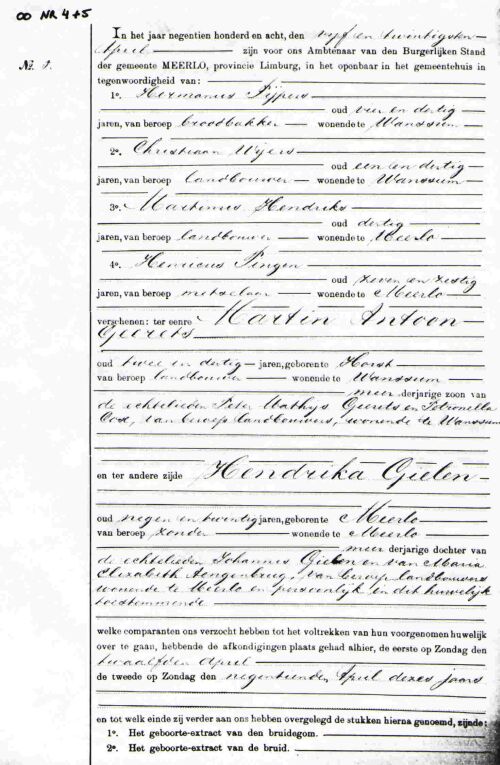 OO NR 4+5
In het jaar negentien honderd en acht, den vyf en twintigsten
April zijn voor ons Ambtenaar van den Burgerlijken Stand
der gemeente MEERLO, provincie Limburg, in het openbaar in het gemeentehuis in
No.
tegenwoordigheid van:
1o. Hermanus Pijpers
oud vier en dertig
jaren, van beroep broodbakker wonende te Wanssum
2o. Christiaan Wijers
oud een en dertig
jaren, van beroep landbouwer wonende te Wanssum
3o. Martinus Hendriks
oud dertig
jaren, van beroep landbouwer wonende te Meerlo
4o. Henricus Pingen
oud zeven en zestig
jaren, van beroep metselaar wonende te Meerlo
verschenen: ter eenre Martin Antoon
Geerets
oud twee en dertig jaren, geboren te Horst
van beroep landbouwer wonende te Wanssum
meer derjarige zoon van
de echtelieden Peter Mathys Geerets en Petronella
van beroep landbouwers, wonende te Wanssum
en ter andere zijde Hendrika Gielen
oud negen en twintig jaren, geboren te Meerlo
van beroep zonder wonende te Meerlo
meer derjarige dochter van
de echtelieden Johannes Gielen en van Maria
Elizabeth van beroep landbouwers
wonende te Meerlo en persoonlijk in dit huwelijk
toestemmende
welke comparanten ons verzocht hebben tot het voltrekken van hun voorgenomen huwelijk
over te gaan, hebbende de afkondigingen plaats gehad alhier, de eerste op Zondag den
twaalfden April
de tweede op Zondag den negentienden April dezes jaars
en tot welk einde zij verder aan ons hebben overgelegd de stukken hierna genoemd, zijnde:
1o. Het geboorte-extract van den bruidegom.
2o. Het geboorte-extract van de bruid.